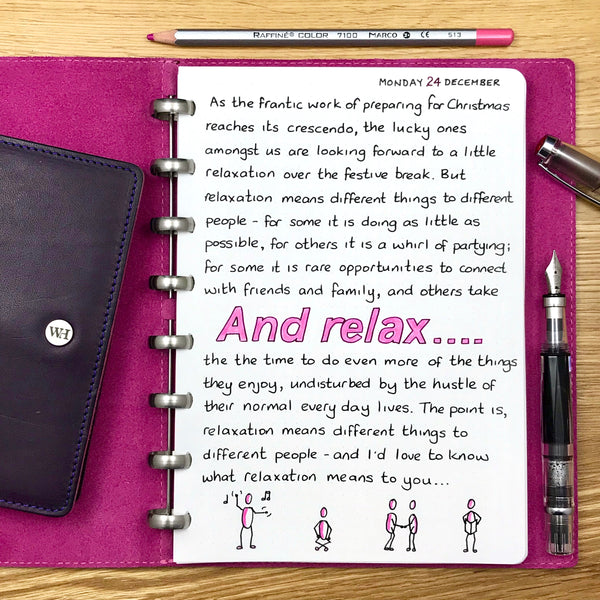 RAFFINÉ COLOR 7100 MARCO CE 513
MONDAY 24 DECEMBER
As the frantic work of preparing for Christmas
reaches its crescendo, the lucky ones
amongst us are looking forward to a little
relaxation over the festive break. But
relaxation means different things to different
people - for some it is doing as little as
possible, for others it is a whirl of partying;
for some it is rare opportunities to connect
with friends and family, and others take
And relax....
the the time to do even more of the things
they enjoy, undisturbed by the hustle of
their normal every day lives. The point is,
relaxation means different things to
different people - and I'd love to know
what relaxation means to you...
WH